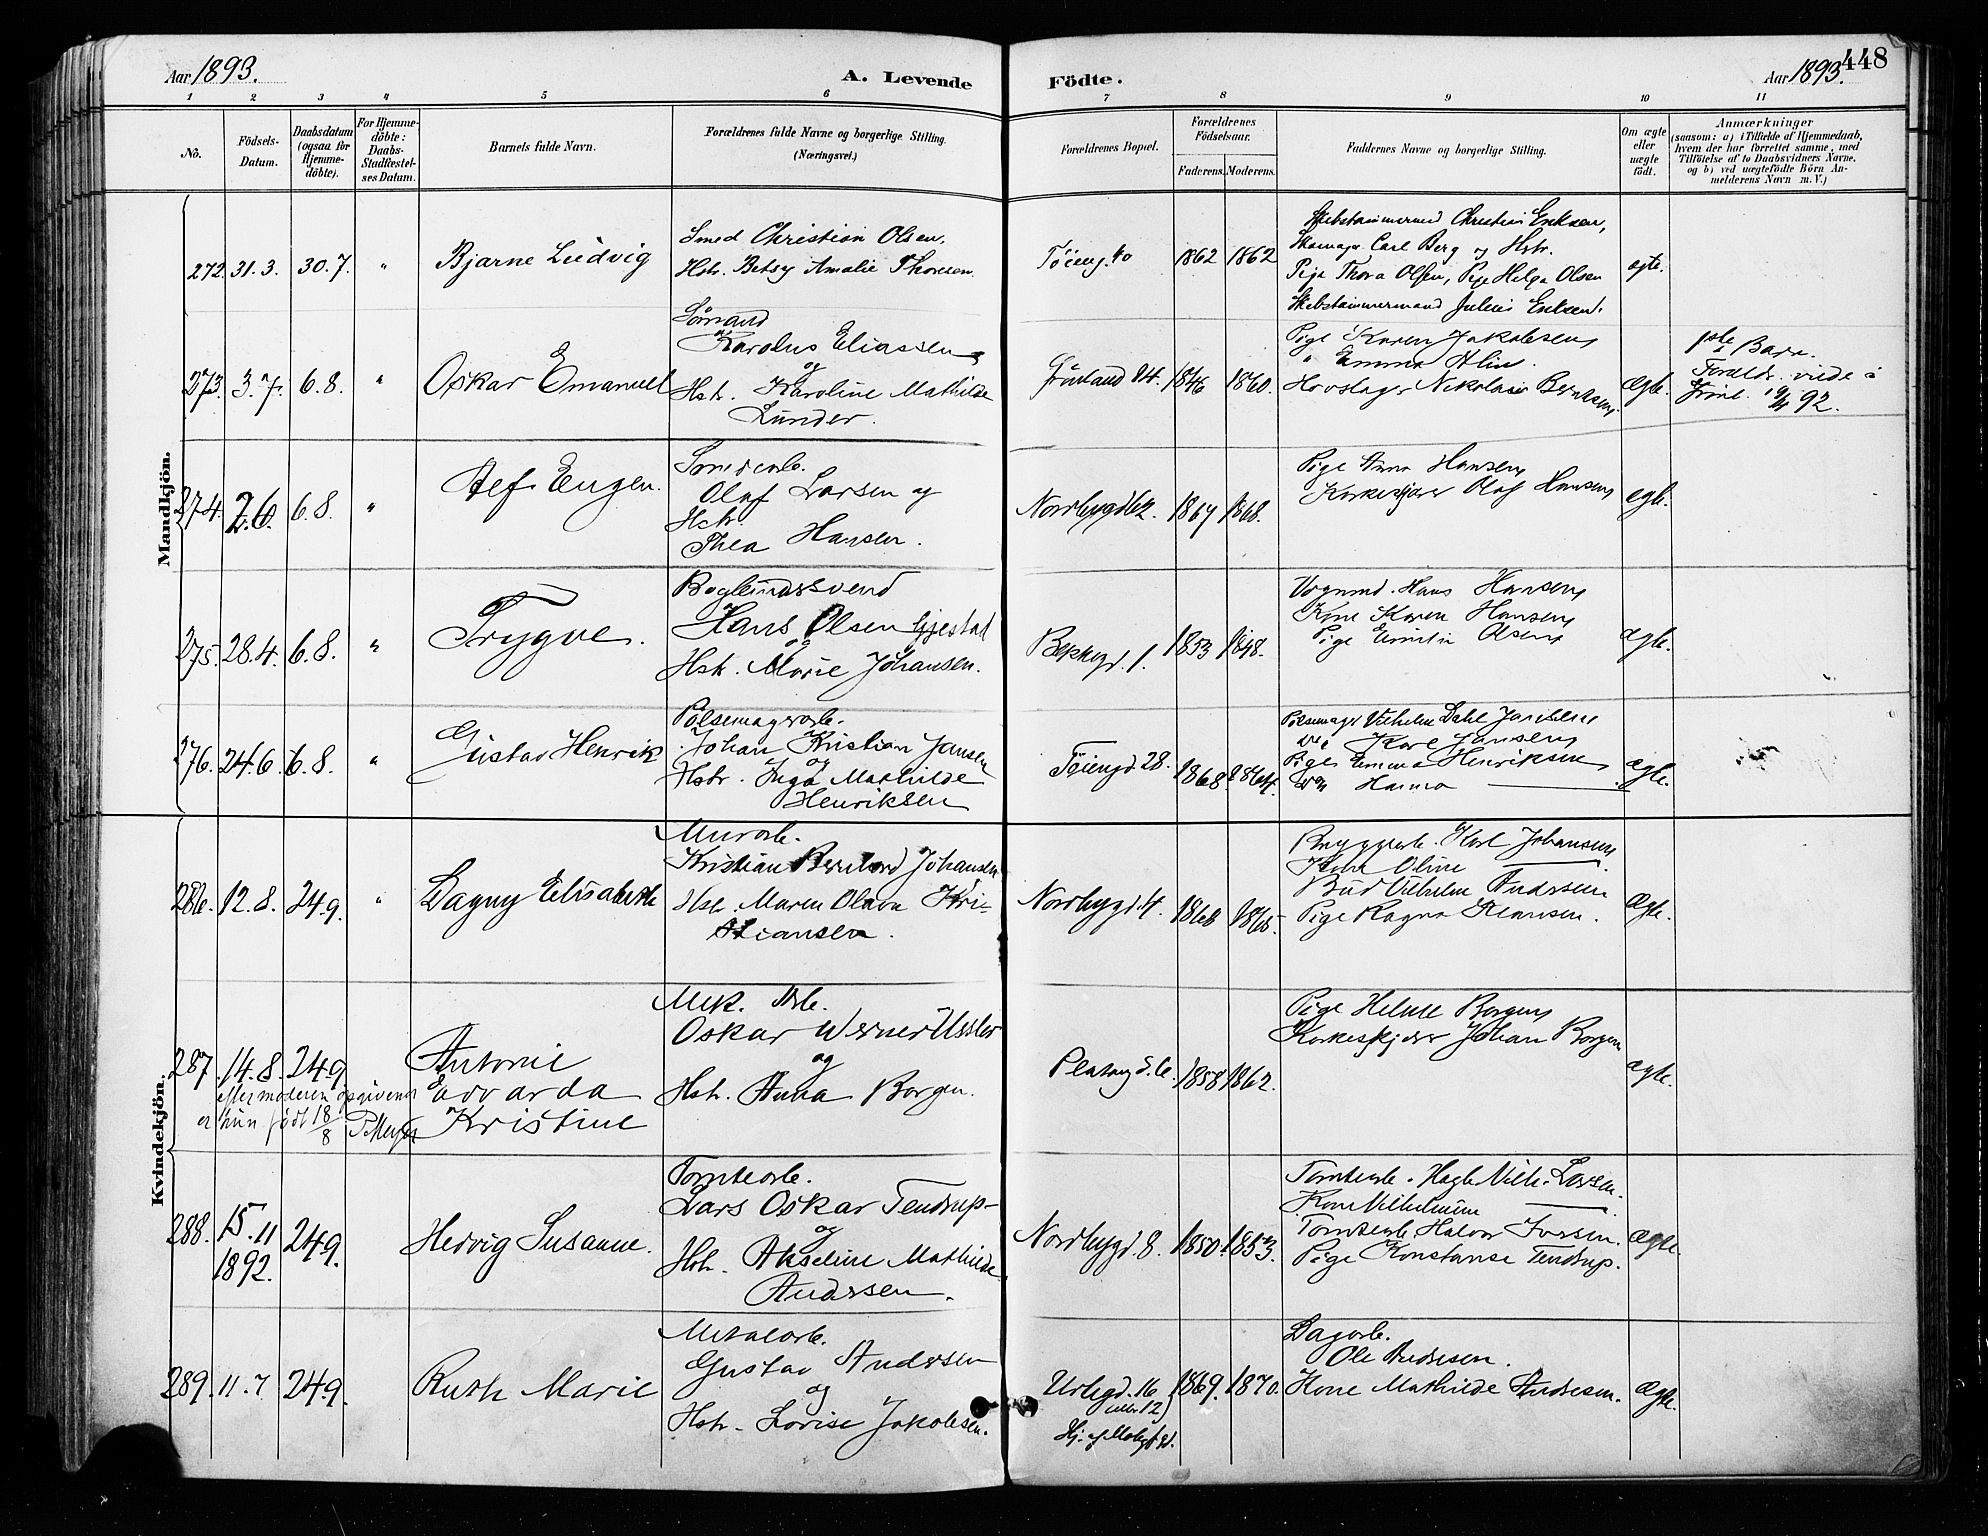 Aar 1893.
A. Levende
Födte.
Aar 1893.
448
1 2 3 4 5 6 7 8 9 10 11
No.
Födsels-Datum.
Daabsdatum (ogsaa for Hjemme-döbte).
For Hjemme-döbte: Daabs-Stadfæstel-ses Datum.
Barnets fulde Navn.
Forældrenes fulde Navne og borgerlige Stilling.
(Næringsvei.)
Forældrenes Bopæl.
Forældrenes Födselsaar.
Faderens. Moderens.
Faddernes Navne og borgerlige Stilling.
Om ægte eller uægte födt.
Anmærkninger
(saasom: a) i Tilfælde af Hjemmedaab,
hvem der har forrettet samme, med
Tilföielse af to Daabsvidners Navne,
og b) ved uægtefödte Börn An-
melderens Navn m. V.)
Mandkjön.
272. 31.3. 30.7. " Bjarne Ludvig
Smed Christian Olsen.
Hstr. Betsy Amalie Thoresen.
Töieng. 40 1862 1862
Skibstømmermd Christian Eriksen,
Skomager Carl Berg og Hstr.
Pige Thora Olsen, Pige Helga Olsen
Skibstømmermand Julius Eriksen.
ægte.
273. 3.7. 6.8. " Oskar Emanuel
Sömand
Karolus Eliassen
og
Hstr. Karoline Mathilde
Lunder.
Grönland 24. 1846 1860.
Pige Karen Jakobsen
" Emma Alm.
Hovslager Nikolai Berntsen.
ægte.
Barn.
Foreldr. viede i
92.
274. 2.6. 6.8. " Alf Eugen.
Smedearb.
Olaf Larsen og
Hstr.
Thea Hansen.
Nordbygd 62. 1867 1868.
Pige Anna Hansen
Korkeskjærer Olaf Hansen
ægte.
275. 28.4. 6.8. " Trygve.
Boglindersvend
Hans Olsen Gjestad
og
Hstr. Marie Johansen.
Bekkegd. 1. 1853 1848.
Vognmd. Hans Hansen
Kone Karen Hansen
Pige Olsen
ægte.
276. 24.6. 6.8. " Gustav Henrik
Pölsemagerarb.
Johan Kristian Jansen
og
Hstr. Inga Mathilde
Henriksen
Töiengd 28. 1868 1864.
Pölsemager Vilhelm Dahl Jansen
Karl Jansen
Pige Emma Henriksen
Hanna
ægte.
Kvindekjön.
286. 12.8. 24.9. " Dagny Elisabeth
Murarb.
Kristian Bernhard Johansen
Hstr. Maren Olava Kri-
stiansen.
Nordbygd. 4. 1868 1865.
Bryggearb. Karl Johansen
Kone Oline
Bud Vilhelm Andersen
Pige Ragna Hansen.
Ægte.
287. 14.8. 24.9. Antonie
Edvarda
Kristine
efter moderen opgivende
er hun födt 18/8 P. Meyer
Mek. Arb.
Oskar Werner Ussler
og
Hstr. Anna Borgen.
Platougd. 6. 1858 1862.
Pige Helene Borgen
Korkeskjærer Johan Borgen
ægte.
288. 15.11
1892. 24.9. Hedvig Susanne.
Tomtearb.
Lars Oskar Tendrup
og
Hstr. Akseline Mathilde
Andersen.
Nordbygd. 8. 1850. 1853.
Tomtearb. Vilh. Larsen.
Kone Vilhelmine
Tomtearb. Halvor Iversen.
Pige Konstanse Tendrup.
Ægte.
289. 11.7 24.9. Ruth Marie
Metalarb.
Gustav Andersen
og
Hstr. Lovise Jakobsen.
Urtegd. 16
(eller 12)
1869. 1870.
Dagarb.
Ole Andresen.
Kone Mathilde Andresen.
Ægte.